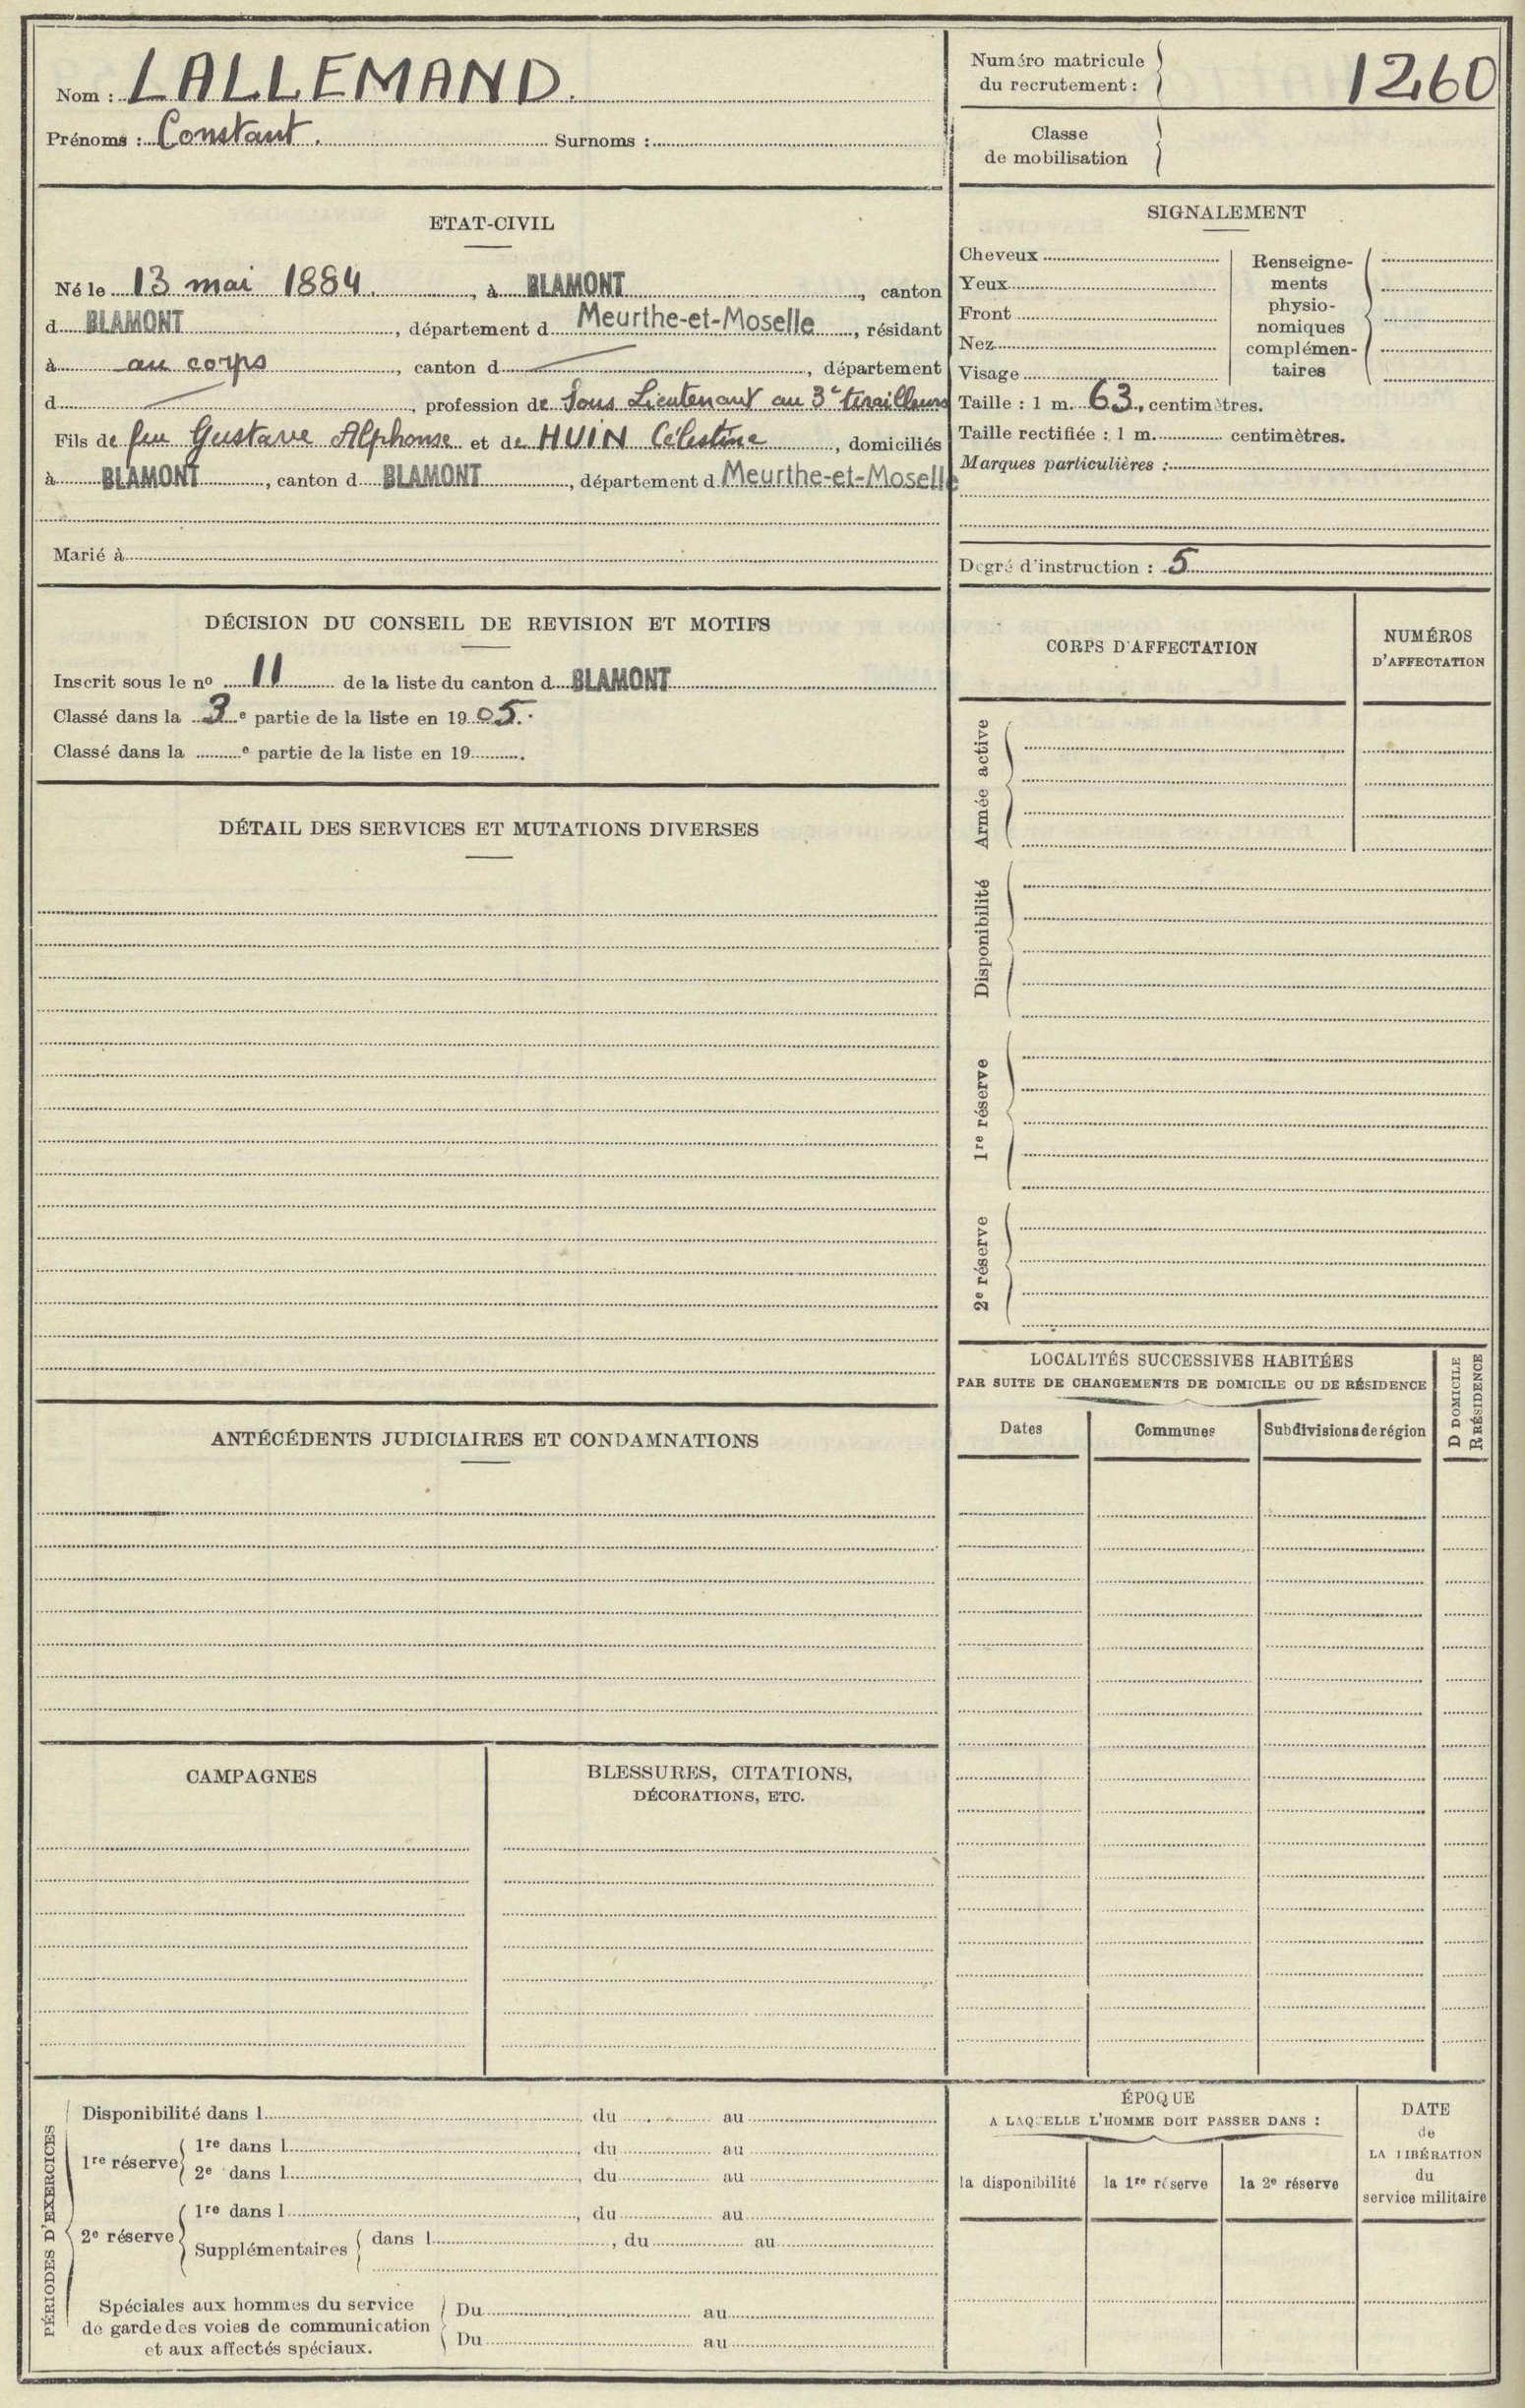 Nom : LALLEMAND.
Prénoms : Constant. Surnoms :
Numéro matricule du recrutement : 1260
Classe de mobilisation
ETAT-CIVIL
Né le 13 mai 1884, à BLAMONT, canton
d BLAMONT, département d Meurthe-et-Moselle, résidant
à au corps, canton d, département
d, profession de Sous Lieutenant au 3e tirailleurs
Fils de feu Gustave Alphonse et de HUIN Célestine, domiciliés
à BLAMONT, canton d BLAMONT, département d Meurthe-et-Moselle
Marié à
SIGNALEMENT
Cheveux
Yeux
Front
Nez
Visage
Renseigne-
ments
physio-
nomiques
complémen-
taires
Taille : 1 m. 63, centimètres.
Taille rectifiée : 1 m. centimètres.
Marques particulières :
Degré d'instruction : 5
DÉCISION DU CONSEIL DE REVISION ET MOTIFS
Inscrit sous le nº 11 de la liste du canton d BLAMONT
Classé dans la 3e partie de la liste en 1905.
Classé dans la e partie de la liste en 19 .
CORPS D'AFFECTATION
NUMÉROS
D'AFFECTATION
Armée active
Disponibilité
1re réserve
2e réserve
DÉTAIL DES SERVICES ET MUTATIONS DIVERSES
LOCALITÉS SUCCESSIVES HABITÉES
PAR SUITE DE CHANGEMENTS DE DOMICILE OU DE RÉSIDENCE
D DOMICILE
R RÉSIDENCE
Dates
Communes
Subdivisions de région
ANTÉCÉDENTS JUDICIAIRES ET CONDAMNATIONS
CAMPAGNES
BLESSURES, CITATIONS,
DÉCORATIONS, ETC.
PÉRIODES D'EXERCICES
Disponibilité dans l , du au
1re réserve
1re dans l , du au
2e dans l , du au
2e réserve
1re dans l , du au
Supplémentaires dans l , du au
Spéciales aux hommes du service
de garde des voies de communication
et aux affectés spéciaux.
Du au
Du au
ÉPOQUE
A LAQUELLE L'HOMME DOIT PASSER DANS :
la disponibilité
la 1re réserve
la 2e réserve
DATE
de
LA LIBÉRATION
du
service militaire